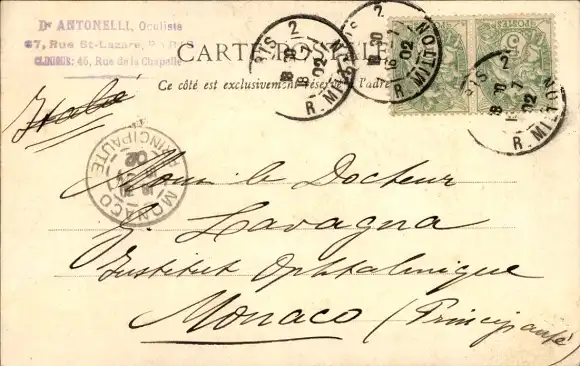 Dr ANTONELLI, Oculiste
67, Rue St-Lazare, PARIS
CLINIQUE: 45, Rue de la Chapelle
CARTE POSTALE
Ce côté est exclusivement réservé à l'adre
Italie
PARIS 2
R. MILTON
18 10
02
R. MILTON
02
2
R. MILTON
18 10
7
02
MONACO
PRINCIPAUTÉ
02
Monsr le Docteur
Lavagna
Institut Ophtalmique
Monaco (Principauté